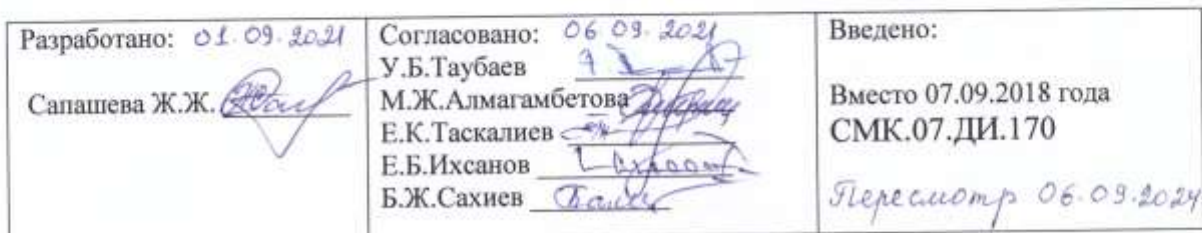 Разработано: 01.09.2021
Сапашева Ж.Ж.
Согласовано: 06 09. 2021
У.Б.Таубаев
М.Ж.Алмагамбетова
Е.К.Таскалиев
Е.Б.Ихсанов
Б.Ж.Сахиев
Введено:
Вместо 07.09.2018 года
СМК.07.ДИ.170
Пересмотр 06.09.2024